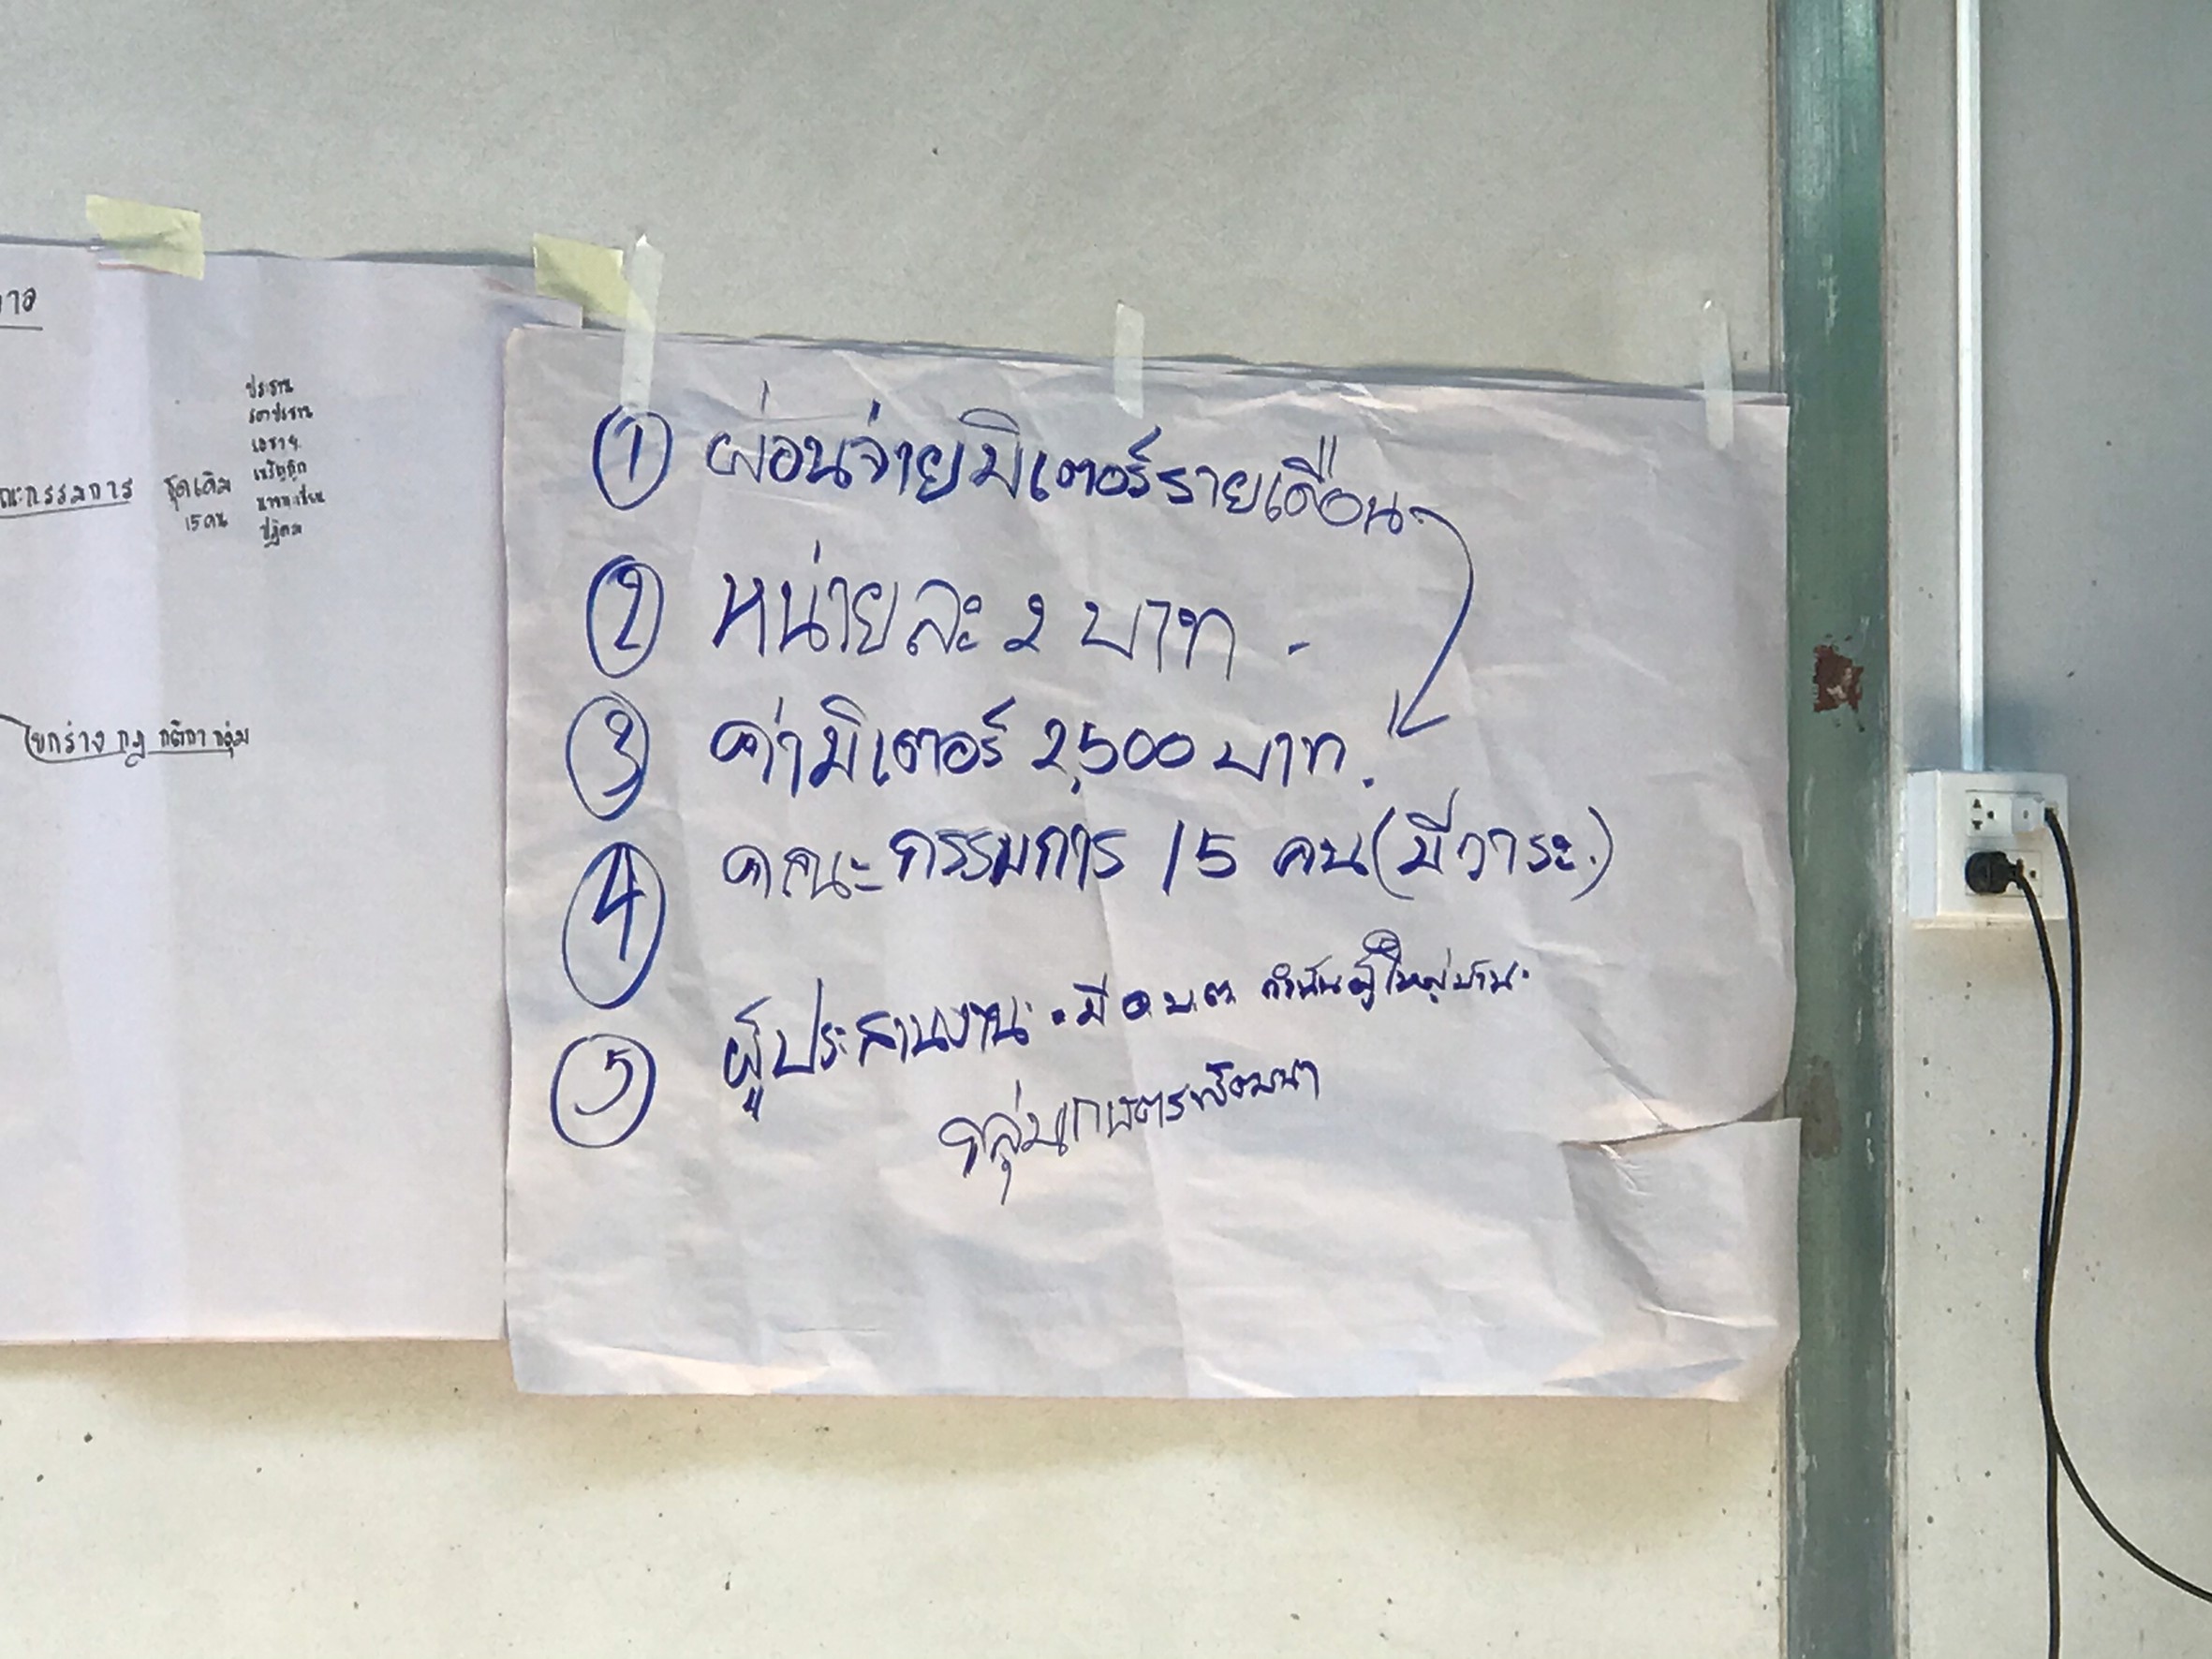 ประธาน
รองประธาน
เลขาฯ
เหรัญญิก
นายทะเบียน
ปฏิคม
ณะกรรมการ ชุดเดิม
15 คน
ยกร่าง กฎ กติกา กลุ่ม
① ผ่อนจ่ายมิเตอร์รายเดือน
② หน่วยละ 2 บาท
③ ค่ามิเตอร์ 2,500 บาท.
④ คณะกรรมการ 15 คน (มีวาระ.)
⑤ ผู้ประสานงาน • มี อบต. กำนันผู้ใหญ่บ้าน
กลุ่มเกษตรพัฒนา